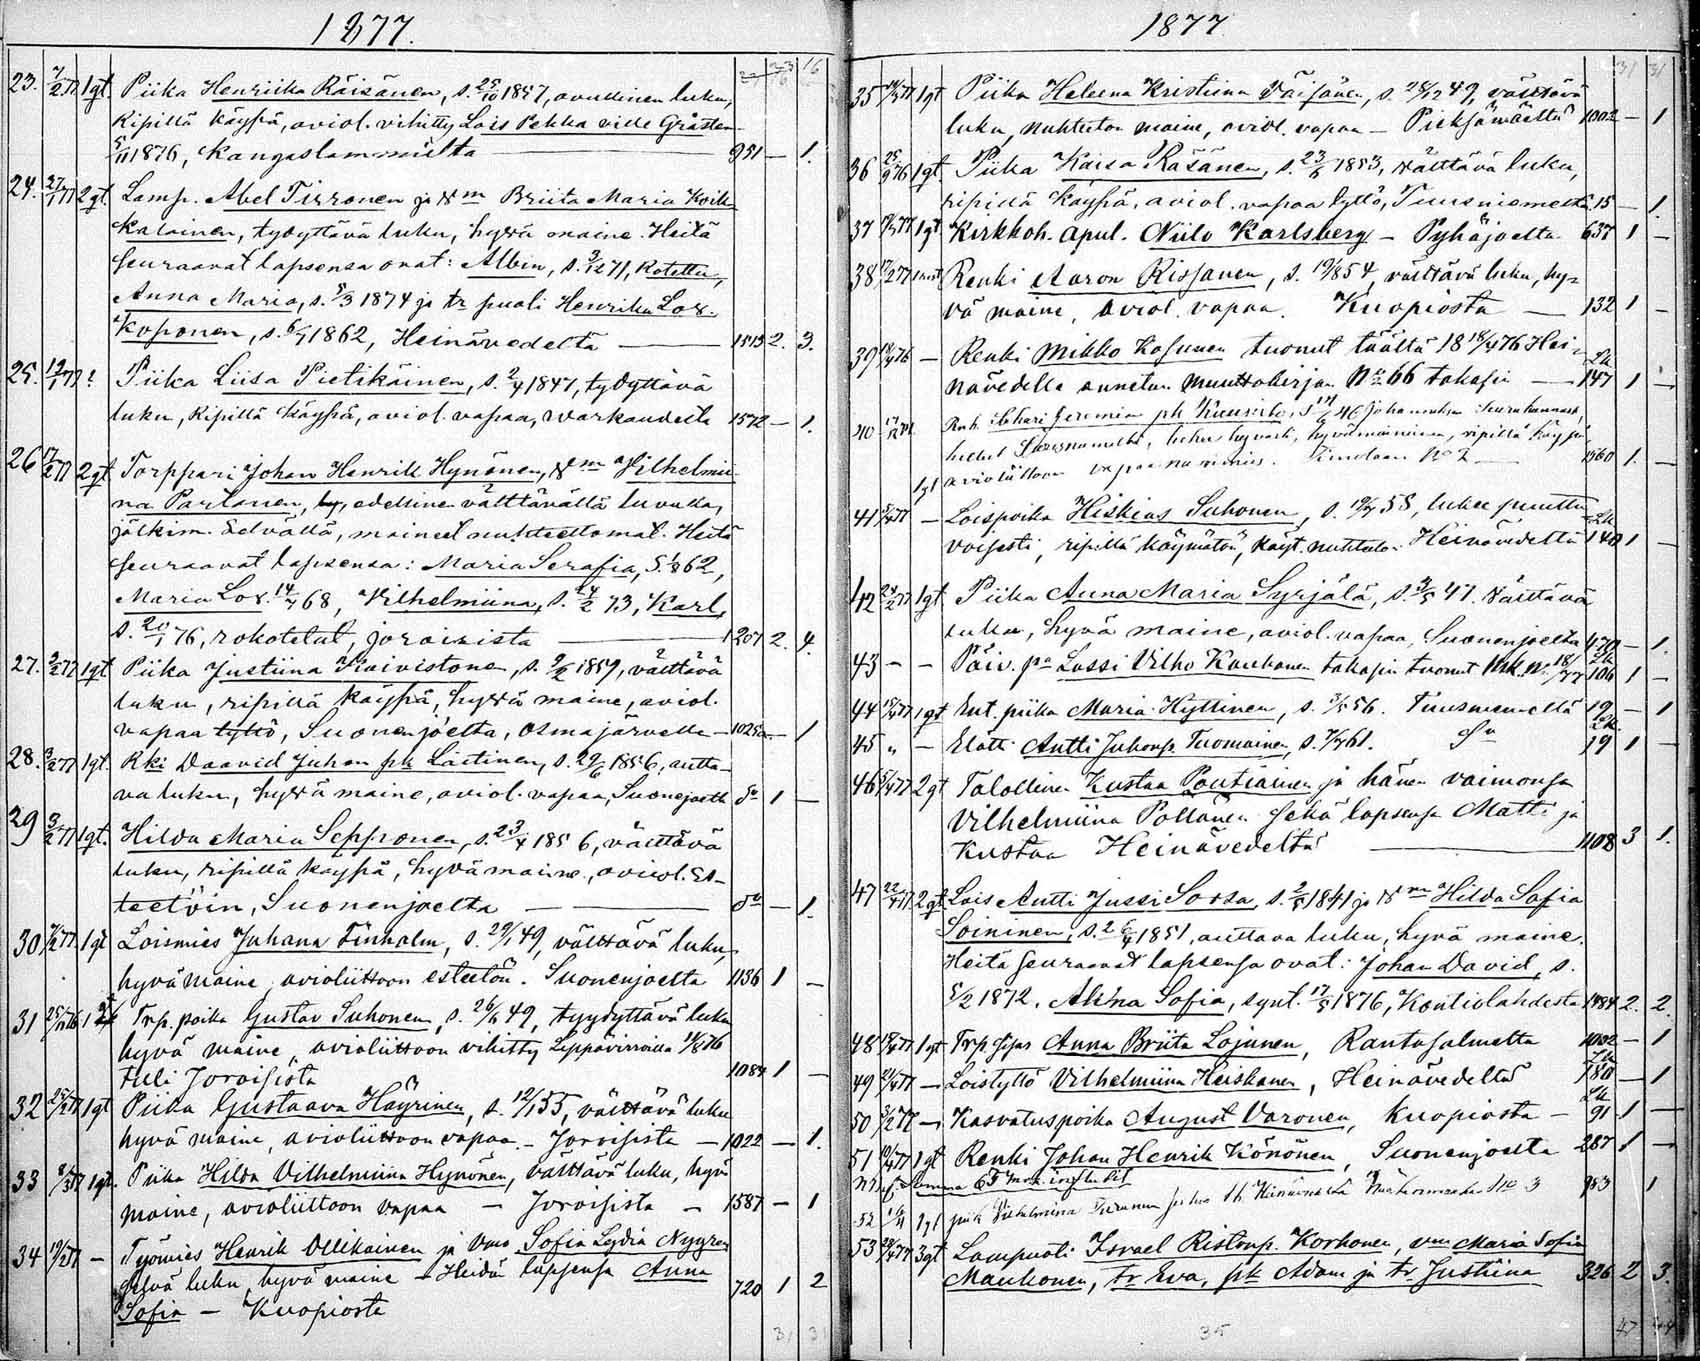 1877.
23. 7/2 77 1gt. Piika Henriika Räisänen, s. 25/10 1857, avullinen luku,
Ripillä käypä, aviol. vihitty Lois Pekka ville Gråsten
5/11 1876, Kangaslammilta — 951 — 1.
24. 27/1 77 2gt. Lamp. Abel Tirronen ja Vm Briita Maria Koik-
kalainen, tydyttävä luku, hyvä maine. Heitä
seuraavat lapsensa ovat: Albin, s. 3/12 71, Rotettu,
Anna Maria, s. 8/3 1874 ja tr puoli Henrika Lov.
Koponen, s. 6/7 1862, Heinävedeltä — 1513 2. 3.
25. 12/1 77 ? Piika Liisa Pietikäinen, s. 2/4 1847, tydyttävä
luku, Ripillä käypä, aviol. vapaa, Warkaudesta 1572 — 1.
26 17/2 77 2gt Torppari Johan Henrik Hynönen, Vm Vilhelmii-
na Partanen, edellinen välttävällä luvulla,
jälkim. Selvällä, maineet nuhteettomat. Heitä
seuraavat lapsensa: Maria Serafia, s. 1/8 62,
Maria Lov. 14/7 68, Vilhelmiina, s. 24/2 73, Karl,
s. 20/1 76, rokotetut, joroisista — 1207 2. 4.
27. 2/2 77 1gt Piika Justiina Kaivistone, s. 9/2 1859, välttävä
luku, ripillä käypä, hyvä maine, aviol.
vapaa tyttö, Suonenjoelta, Osmajärvelle — 1025a — 1
28. 3/2 77 1gt. Rki Daavid Juhan pk Laitinen, s. 29/6 1856, autta-
va luku, hyvä maine, aviol. vapaa, Suonejoelta do 1 —
29 3/2 77 1gt. Hilda Maria Sepponen, s. 23/4 1856, välttävä
luku, ripillä käypä, hyvä maine, aviol. Es-
teetöin, Suonenjoelta — do — 1.
30 7/2 77 1gt Loismies Juhana Finholm, s. 29/1 49, välttävä luku,
hyvä maine, avioliittoon esteetön. Suonenjoelta 1136 1 —
31 25/11 76 1gt Trp. poika Gustav Suhonen, s. 26/6 49, tyydyttävä luku
hyvä maine, avioliittoon vihitty Leppävirroilla 11/8 76
tuli Joroisista 1084 1 —
32 25/2 77 1gt Piika Gustaava Häyrinen, s. 12/1 55, välttävä luku
hyvä maine, avioliittoon vapaa. — Joroisista — 1022 — 1.
33 8/3 77 1gt. Piika Hilda Vilhelmiina Hynönen, välttävä luku, hyvä
maine, avioliittoon vapaa — Joroisista — 1587 — 1
34 19/2 77 — Työmies Henrik Ollikainen ja Vmo Sofia Lydia Nygren
hyvä luku, hyvä maine — Heidän lapsensa Anna
Sofia — Kuopiosta 720 1 2
1877
35 1gt Piika Heleena Kristiina Väisänen, s. 28/12 49, välttävä
luku, nuhteeton maine, aviol. vapaa — Pieksämäeltä 1002 — 1
36 25/9 76 1gt Piika Kaisa Räsänen, s. 23/5 1853, välttävä luku,
ripillä käypä, aviol. vapaa tyttö, Tuusniemeltä 15 — 1.
37 1gt Kirkkoh. apul. Niilo Karlsberg — Pyhäjoelta 637 1 —
38 17/2 77 Renki Aaron Rissanen, s. 19/8 54, välttävä luku, hy-
vä maine, aviol. vapaa. Kuopiosta — 132 1 —
39 — Renki Mikko Kosunen tuonut täältä 18 18/4 76 Hei-
nävedelle annetun muuttokirjan No 66 takasin — 147 1 —
40 Renk. Jeremias pk Kuusisto, s. 17/6 46
luku hyvästi, hyvämaineinen, ripillä käypä
1gt avioliittoon vapaa No 2 — 1560 1. —
41 — Loispoika Hiskias Suhonen, s. 19/4 58, lukee puuttu-
vaisesti, ripillä käymätön, käyt. nuhteeto: Heinävedeltä 140 1 —
42 24/2 77 1gt Piika Anna Maria Syrjälä, s. 3/5 47. Välttävä
luku, hyvä maine, aviol. vapaa, Suonenjoelta 479 — 1.
43 — — Päiv. po Lassi Vilho Kauhanen takasin tuonut Mk. No 18/77 106 1 —
44 1gt Ent. piika Maria Hyttinen, s. 3/5 56. Tuusniemeltä 19 — 1
45 „ — Elätti Antti Juhonp. Tuomainen, s. 7/7 61. do 19 1 —
46 2gt Talollinen Kustaa Pentiäinen ja hänen vaimonsa
Vilhelmiina Pöllänen sekä lapsensa Matti ja
Kustaa Heinävedeltä — 1108 3 1.
47 22/4 77 2gt Lois Antti Jussi Sorsa, s. 2/5 1841 ja Vmo Hilda Sofia
Soininen, s. 26/4 1851, auttava luku, hyvä maine.
Heitä seuraavat lapsensa ovat: Johan David, s.
5/2 1872, Alina Sofia, synt. 17/5 1876, Kontiolahdesta 1484 2. 2.
48 1gt Trp. Anna Briita Lojunen, Rantasalmelta 1032 — 1
49 — Loistyttö Vilhelmiina Heiskanen, Heinävedeltä 180 — 1
50 — Kasvatuspoika August Varonen, Kuopiosta — 91 1 —
51 1gt Renki Johan Henrik Könönen, Suonenjoelta 287 1 —
52 1gt piik Vilhelmiina Turunen Heinävedeltä No 3 953 1
53 28/4 77 3gt Lampuoti Israel Ristonp. Korhonen, vmo Maria Sofia
Mankonen, tr Eva, pk Adam ja tr Justiina 326 2 3.
35
47 44